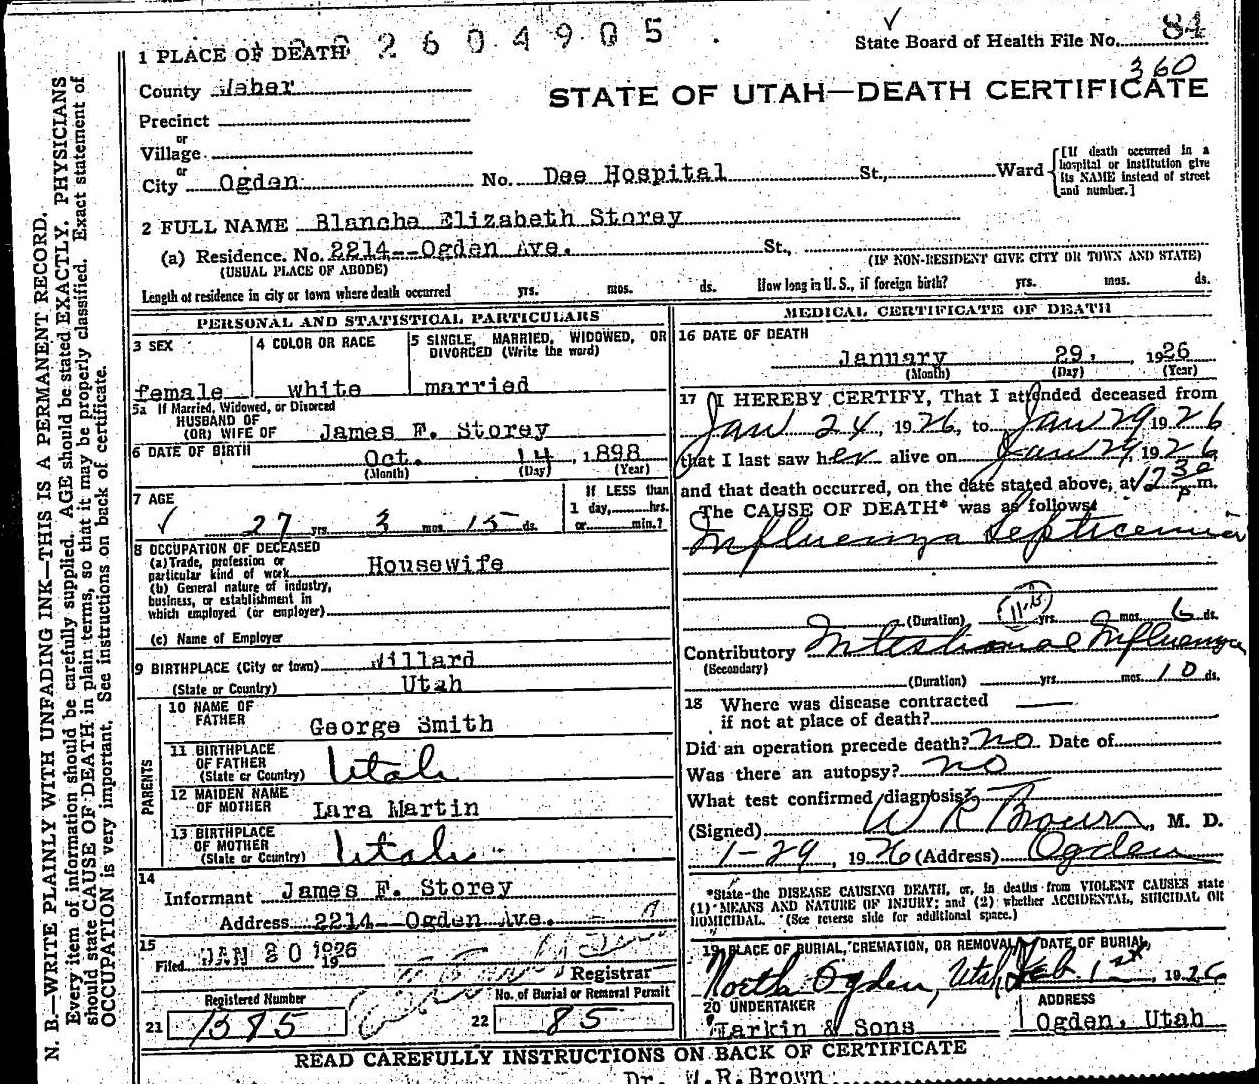 2604905
State Board of Health File No. 84
360
1 PLACE OF DEATH
County Weber
STATE OF UTAH—DEATH CERTIFICATE
Precinct
or
Village
or
City Ogden No. Dee Hospital St., Ward
[If death occurred in a hospital or institution give its NAME instead of street and number.]
2 FULL NAME Blanche Elizabeth Storey
(a) Residence. No. 2214--Ogden Ave. St.,
(USUAL PLACE OF ABODE) (IF NON-RESIDENT GIVE CITY OR TOWN AND STATE)
Length of residence in city or town where death occurred yrs. mos. ds. How long in U. S., if foreign birth? yrs. mos. ds.
PERSONAL AND STATISTICAL PARTICULARS
3 SEX
female
4 COLOR OR RACE
white
5 SINGLE, MARRIED, WIDOWED, OR
DIVORCED (Write the word)
married
5a If Married, Widowed, or Divorced
HUSBAND OF
(OR) WIFE OF James F. Storey
6 DATE OF BIRTH Oct. 14, 1898
(Month) (Day) (Year)
7 AGE
✓ 27 yrs. 3 mos. 15 ds.
If LESS than
1 day, hrs.
or min.?
8 OCCUPATION OF DECEASED
(a) Trade, profession or
particular kind of work Housewife
(b) General nature of industry,
business, or establishment in
which employed (or employer)
(c) Name of Employer
9 BIRTHPLACE (City or town) Willard
(State or Country) Utah
PARENTS
10 NAME OF
FATHER George Smith
11 BIRTHPLACE
OF FATHER
(State or Country) Utah
12 MAIDEN NAME
OF MOTHER Lara Martin
13 BIRTHPLACE
OF MOTHER
(State or Country) Utah
14
Informant James F. Storey
Address 2214--Ogden Ave.
15
Filed JAN 30 1926 19
Registrar
Registered Number
21 1385
No. of Burial or Removal Permit
22 85
MEDICAL CERTIFICATE OF DEATH
16 DATE OF DEATH
January 29, 1926
(Month) (Day) (Year)
17 I HEREBY CERTIFY, That I attended deceased from
Jan 24, 1926, to Jan 29 1926
that I last saw her alive on Jan 29, 1926
and that death occurred, on the date stated above, at 12 30 p m.
The CAUSE OF DEATH* was as follows:
Influenza Septicemia
11-B
(Duration) yrs. mos. 6 ds.
Contributory Intestinal Influenza
(Secondary)
(Duration) yrs. mos. 10 ds.
18 Where was disease contracted
if not at place of death?
Did an operation precede death? no Date of
Was there an autopsy? no
What test confirmed diagnosis?
(Signed) W R Brown, M. D.
1-29, 1926 (Address) Ogden
*State the DISEASE CAUSING DEATH, or, in deaths from VIOLENT CAUSES state
(1) MEANS AND NATURE OF INJURY; and (2) whether ACCIDENTAL, SUICIDAL OR
HOMICIDAL. (See reverse side for additional space.)
19 PLACE OF BURIAL, CREMATION, OR REMOVAL DATE OF BURIAL
North Ogden, Utah Feb 1st, 1926
20 UNDERTAKER ADDRESS
Larkin & Sons Ogden, Utah
READ CAREFULLY INSTRUCTIONS ON BACK OF CERTIFICATE
Dr. W.R.Brown
N. B.—WRITE PLAINLY WITH UNFADING INK—THIS IS A PERMANENT RECORD.
Every item of information should be carefully supplied. AGE should be stated EXACTLY. PHYSICIANS
should state CAUSE OF DEATH in plain terms, so that it may be properly classified. Exact statement of
OCCUPATION is very important. See instructions on back of certificate.